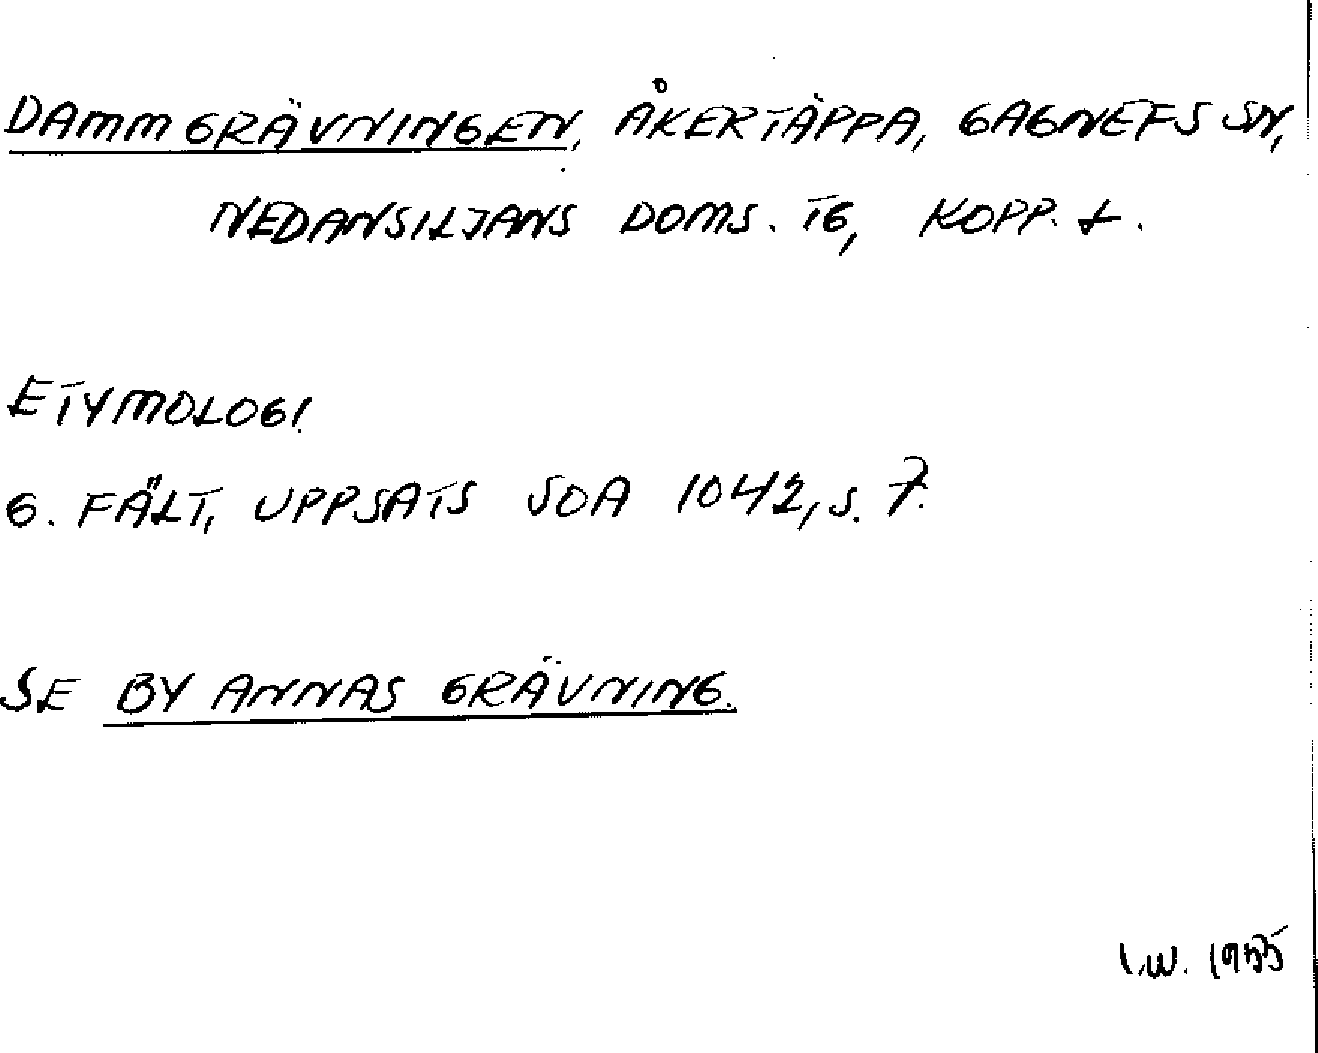 DAMMGRÄVNINGEN, ÅKERTÄPPA, GAGNEFS SN,
NEDANSILJANS DOMS. TG, KOPP. L.
ETYMOLOGI
G. FÄLT, UPPSATS SOA 1042, S. 7.
SE BY ANNAS GRÄVNING.
I.W. 1955